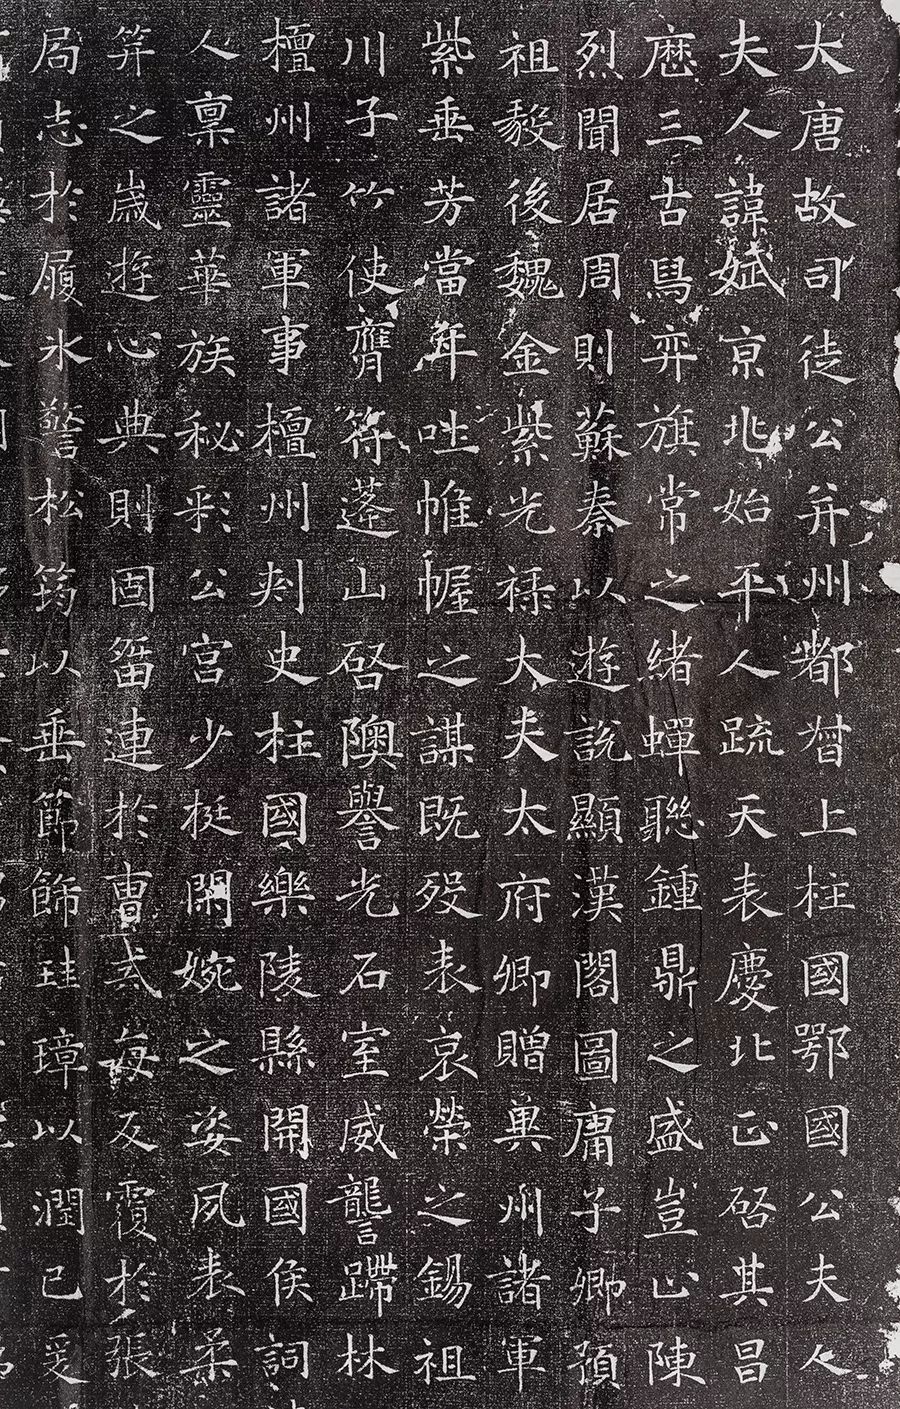 大唐故司徒公并州都督上柱國鄂國公夫人
夫人諱娬京兆始平人疏天表慶北正啓其昌
曆三古舄弈旗常之緒蟬聯鍾鼎之盛豈止陳
烈聞居周則蘇秦以遊說顯漢閣圖庸子卿預
祖毅後魏金紫光祿大夫太府卿贈冀州諸軍
紫垂芳當年吐帷幄之謀既歿表哀榮之錫祖
川子竹使膺符蓬山啓隩譽光石室威讋蹛林
檀州諸軍事檀州刾史柱國樂陵縣開國侯詞
人稟靈華族秘彩公宮少挺閑婉之姿夙表柔
笄之歲遊心典則固留連於曹弍每反覆於張
局志於履氷警松筠以垂節飾珪璋以潤己爰